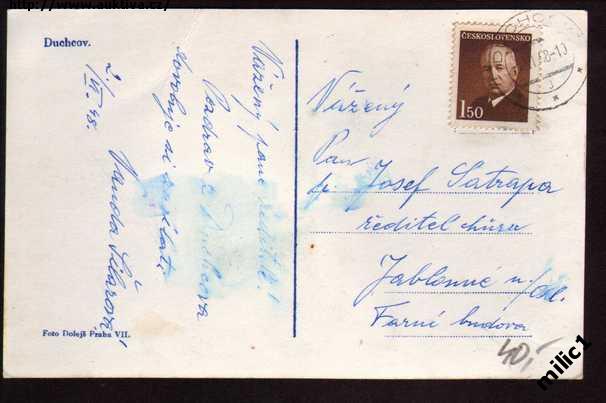 http://www.auktiva.cz/
Duchcov.
Vážený pane řediteli!
Pozdrav z Duchcova
dovoluje si zaslati
Vanda
2/VI. 48.
Foto Dolejš Praha VII.
ČESKOSLOVENSKO
1 50
Vážený
Pan
p. Josef Satrapa
ředitel kůru
Jablonné n/Orl.
Farní budova
40,-
milic1